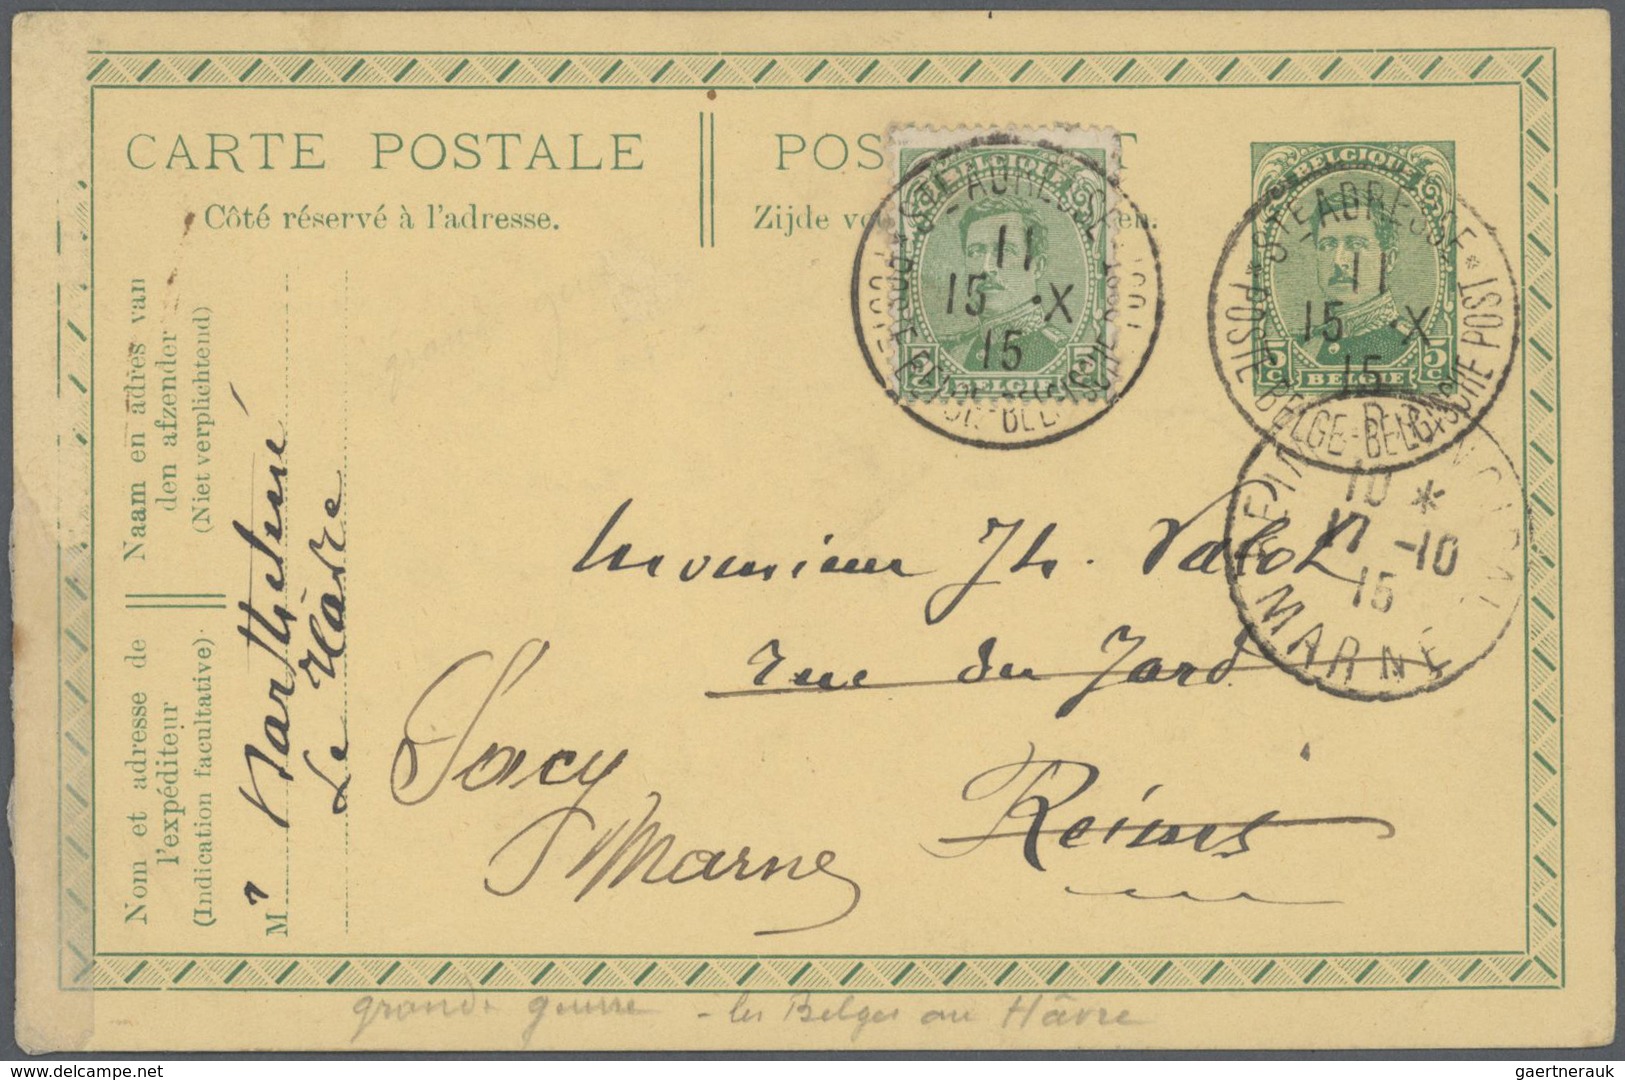 CARTE POSTALE
Côté réservé à l'adresse.
POS T
Zijde en.
BELGIQUE
5 c 5 c
BELGIE
BELGIQUE
BELGIE
STE-ADRESSE
POSTE BELGE-BELGISCHE POST
11
15 ·X
15
* STE-ADRESSE * POSTE BELGE-BELGISCHE POST
11
15 ·X
15
10 *
17 -10
15
MARNE
Naam en adres van
den afzender
(Niet verplichtend)
Nom et adresse de
l'expéditeur
(Indication facultative).
Mr Barthelemé
Le Hâvre
Monsieur Jh. Valot
rue du Jard
Reims
Sacy
Marne
grande guerre - les Belges au Hâvre
delcampe.net
gaertnerauk